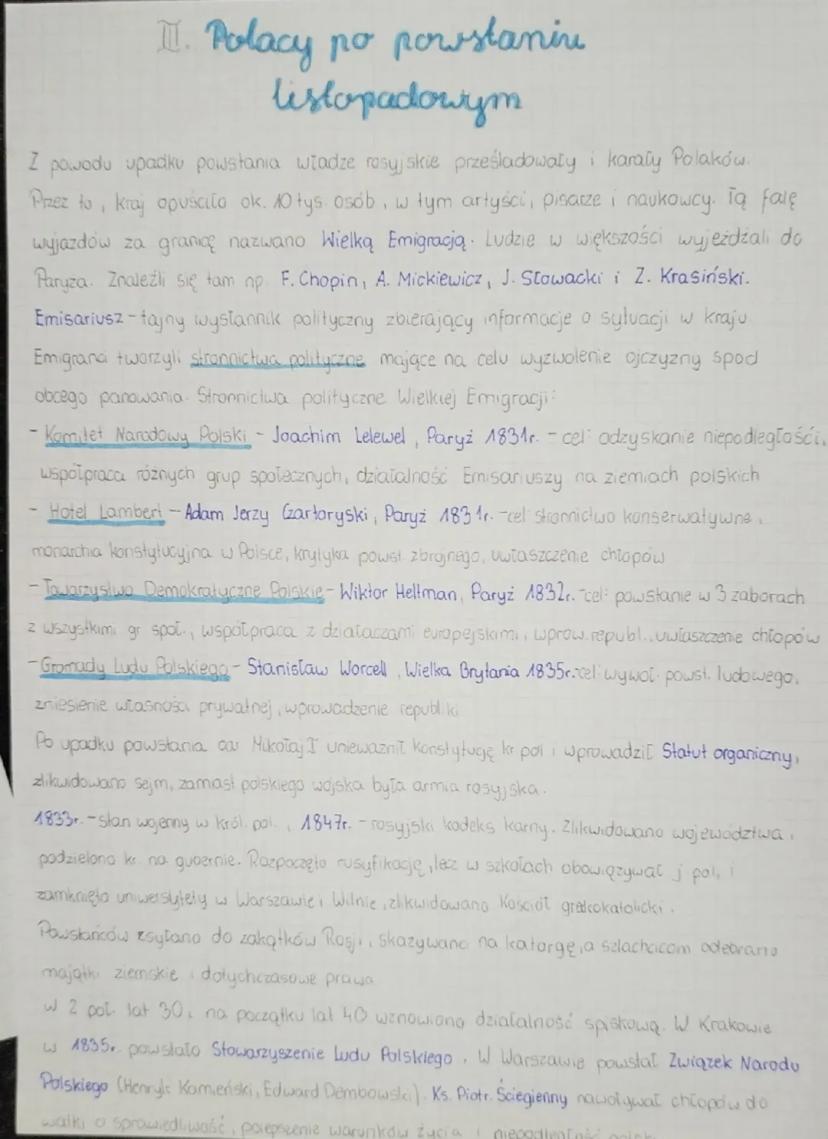 III. Polacy po powstaniu
listopadowym
Z powodu upadku powstania władze rosyjskie prześladowały i karały Polaków.
Przez to, kraj opuściło ok. 10 tys. osób, w tym artyści, pisarze i naukowcy. Tą falę
wyjazdów za granicę nazwano Wielką Emigracją. Ludzie w większości wyjeżdżali do
Paryża. Znaleźli się tam np. F. Chopin, A. Mickiewicz, J. Słowacki i Z. Krasiński.
Emisariusz - tajny wysłannik polityczny zbierający informacje o sytuacji w kraju
Emigranci tworzyli stronnictwa polityczne mające na celu wyzwolenie ojczyzny spod
obcego panowania. Stronnictwa polityczne Wielkiej Emigracji:
- Komitet Narodowy Polski - Joachim Lelewel, Paryż 1831r. - cel: odzyskanie niepodległości,
współpraca różnych grup społecznych, działalność Emisariuszy na ziemiach polskich
- Hotel Lambert - Adam Jerzy Czartoryski, Paryż 1831r. - cel stronnictwo konserwatywne,
monarchia konstytucyjna w Polsce, krytyka powst. zbrojnego, uwłaszczenie chłopów
- Towarzystwo Demokratyczne Polskie - Wiktor Heltman, Paryż 1832r. - cel: powstanie w 3 zaborach
z wszystkimi gr społ., współpraca z działaczami europejskimi, wprow. republ., uwłaszczenie chłopów
- Gromady Ludu Polskiego - Stanisław Worcell, Wielka Brytania 1835r. - cel: wywoł. powst. ludowego,
zniesienie własności prywatnej, wprowadzenie republiki
Po upadku powstania car Mikołaj I unieważnił konstytucję kr pol i wprowadził Statut organiczny,
zlikwidowano sejm, zamiast polskiego wojska była armia rosyjska.
1833r. - stan wojenny w król. pol., 1847r. - rosyjski kodeks karny. Zlikwidowano województwa,
podzielono kr. na gubernie. Rozpoczęto rusyfikację, lecz w szkołach obowiązywał j pol, i
zamknięto uniwersytety w Warszawie i Wilnie, zlikwidowano Kościół grekokatolicki.
Powstańców zsyłano do zakątków Rosji, skazywano na katorgę, a szlachcicom odebrano
majątki ziemskie i dotychczasowe prawa
W 2 poł. lat 30, na początku lat 40 wznowiono działalność spiskową. W Krakowie
w 1835r. powstało Stowarzyszenie Ludu Polskiego. W Warszawie powstał Związek Narodu
Polskiego (Henryk Kamieński, Edward Dembowski). Ks. Piotr. Ściegienny nawoływał chłopów do
walki o sprawiedliwość, polepszenie warunków życia i niepodległość